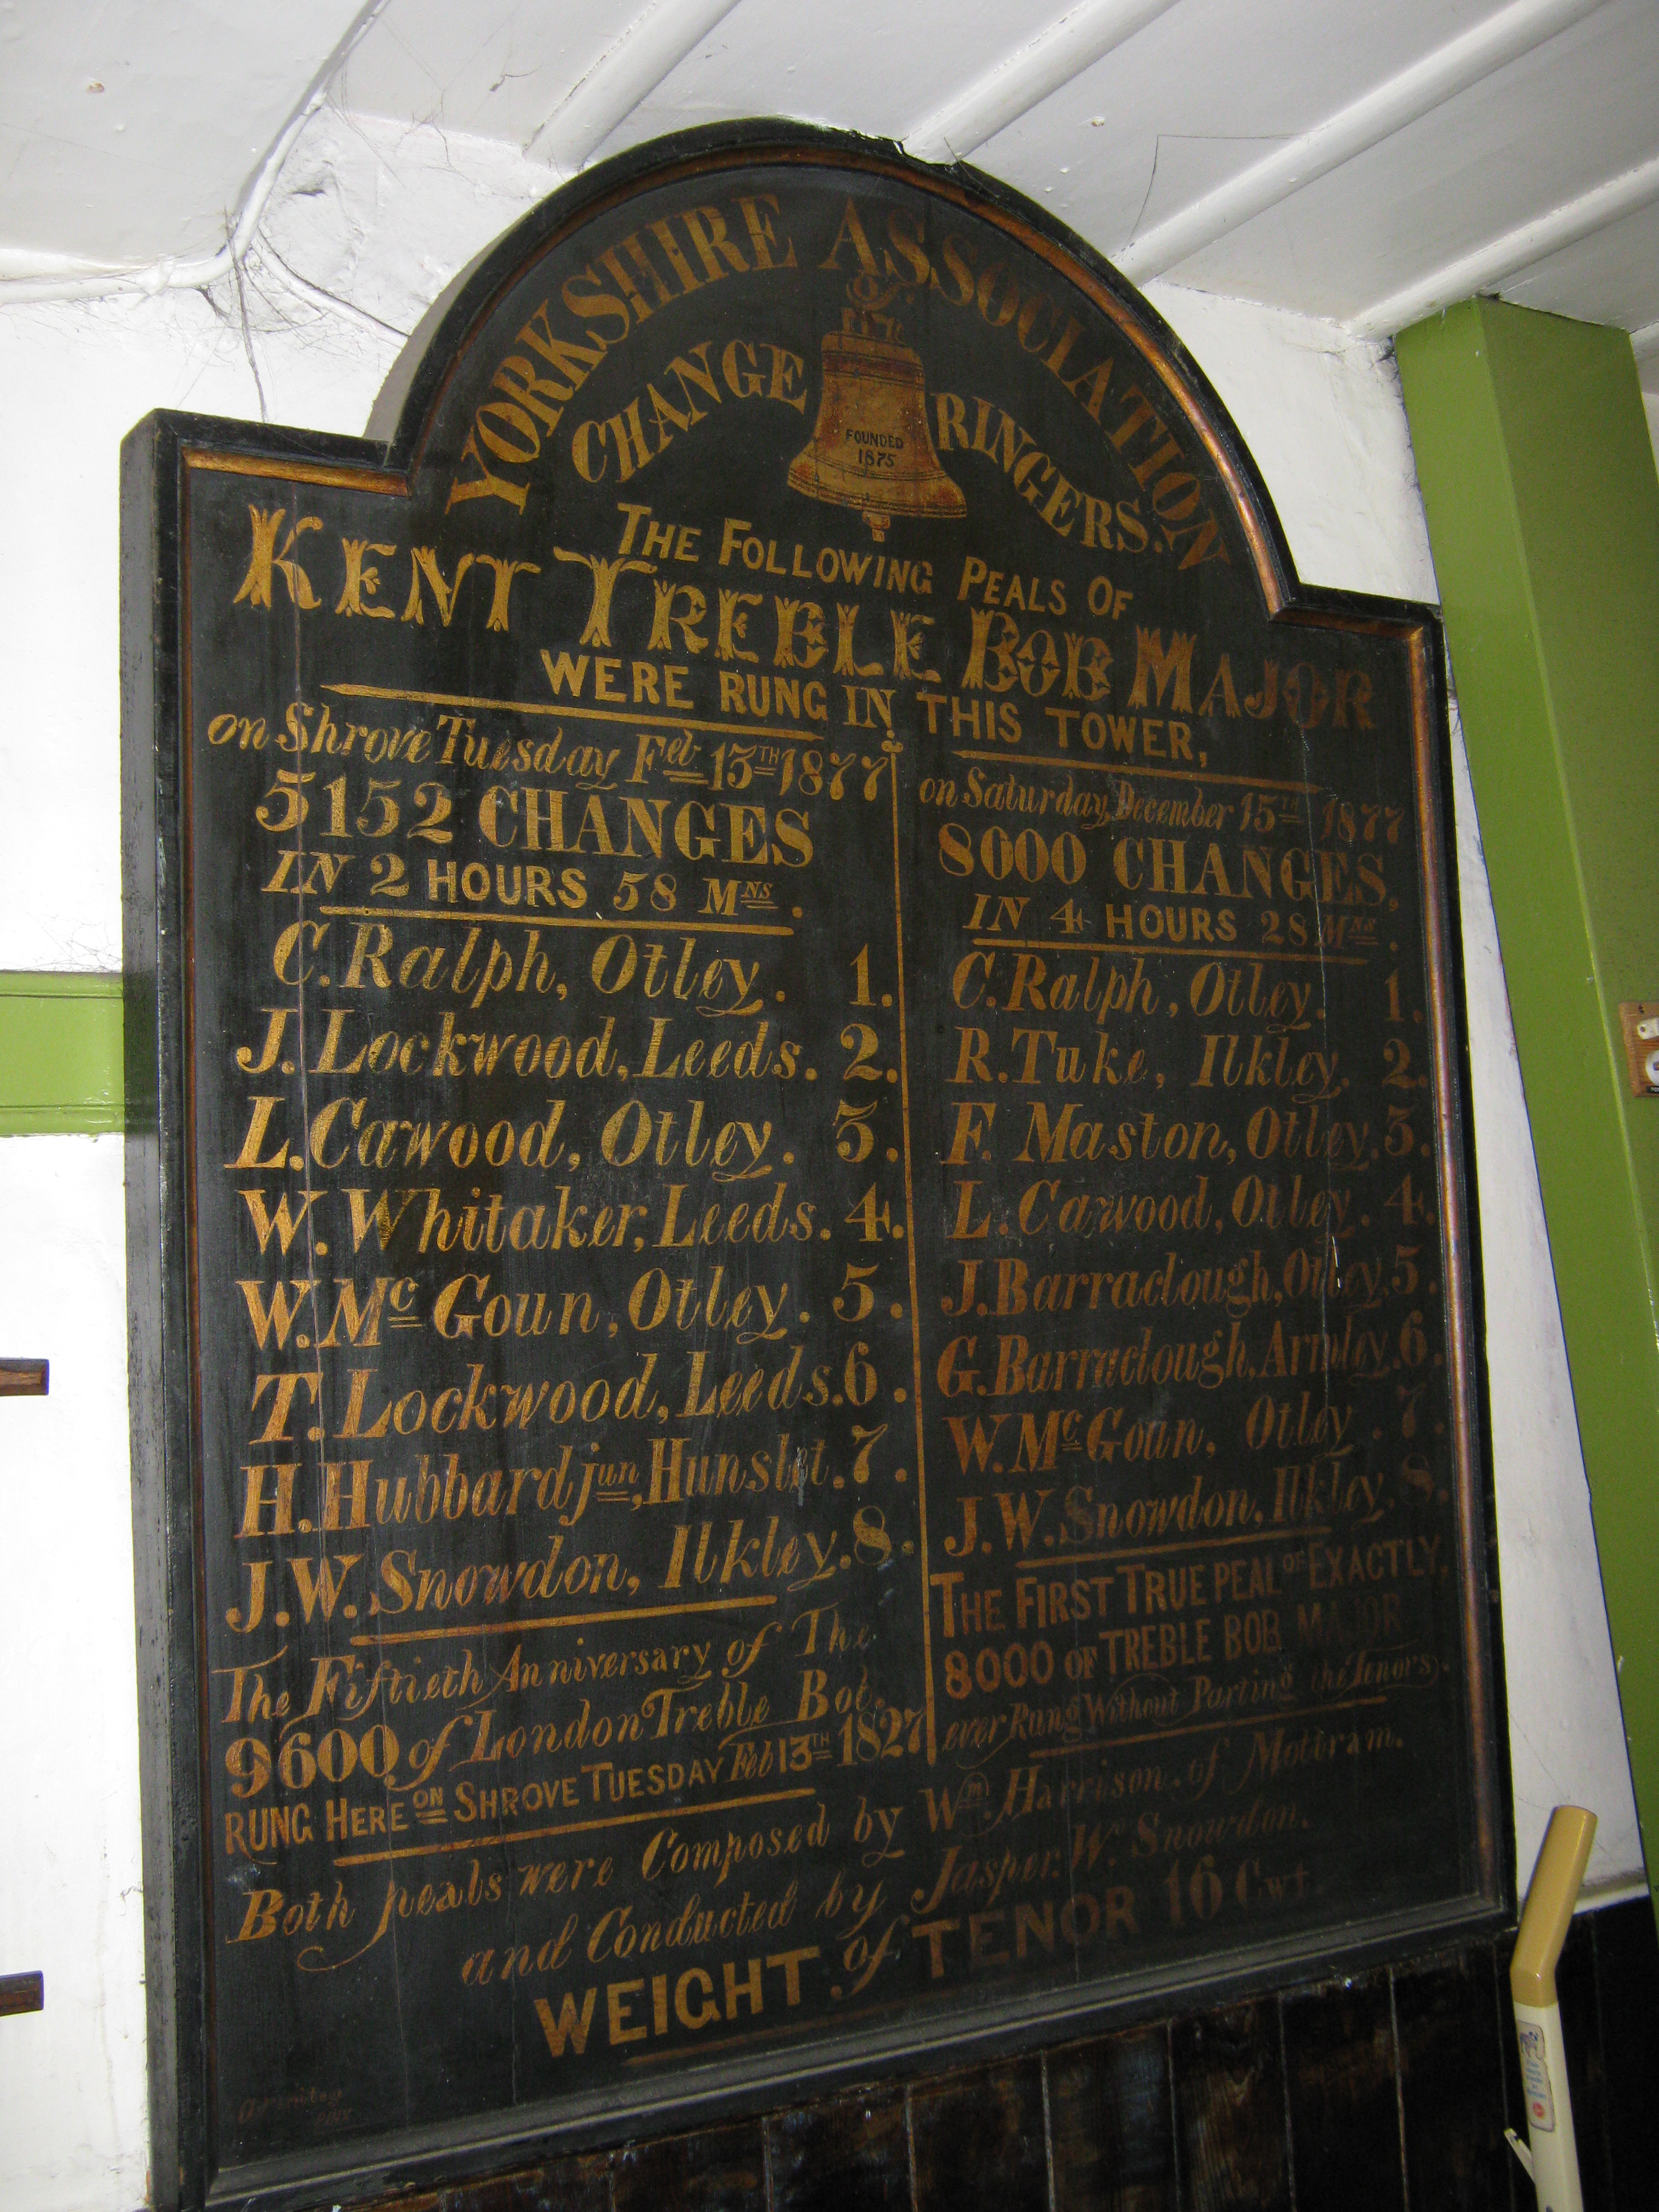 YORKSHIRE ASSOCIATION
OF
CHANGE RINGERS.
FOUNDED
1875
THE FOLLOWING PEALS OF
KENT TREBLE BOB MAJOR
WERE RUNG IN THIS TOWER,
on Shrove Tuesday Feb 13TH 1877
5152 CHANGES
IN 2 HOURS 58 MNS.
C. Ralph, Otley. 1.
J. Lockwood, Leeds. 2.
L. Cawood, Otley. 3.
W. Whitaker, Leeds. 4.
W. Mc Goun, Otley. 5.
T. Lockwood, Leeds. 6.
H. Hubbard jun, Hunslet. 7.
J. W. Snowdon, Ilkley. 8.
The Fiftieth Anniversary of The
9600 of London Treble Bob.
RUNG HERE ON SHROVE TUESDAY Feb 13TH 1827
on Saturday, December 15TH 1877
8000 CHANGES,
IN 4 HOURS 28 MNS.
C. Ralph, Otley. 1.
R. Tuke, Ilkley. 2.
F. Maston, Otley. 3.
L. Cawood, Otley. 4.
J. Barraclough, Otley. 5.
G. Barraclough, Armley. 6.
W. Mc Goun, Otley. 7.
J. W. Snowdon, Ilkley. 8.
THE FIRST TRUE PEAL OF EXACTLY,
8000 OF TREBLE BOB MAJOR
ever Rung Without Parting the Tenors.
Both peals were Composed by Wm. Harrison. of Mottram.
and Conducted by Jasper. W. Snowdon.
WEIGHT of TENOR 16 Cwt.